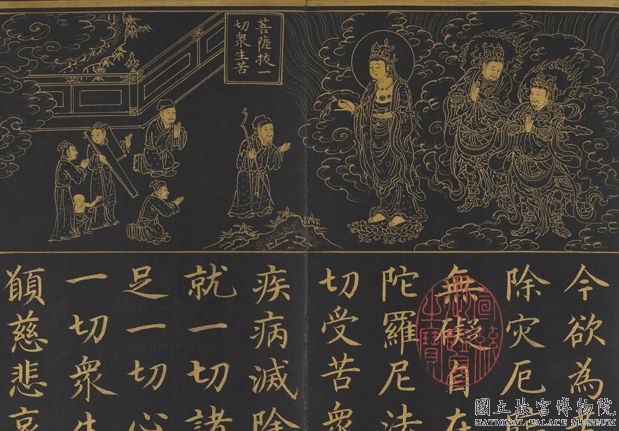 菩薩拔一
切衆生苦
今欲為
除灾厄
無礙自在
陀羅尼法
切受苦衆
疾病滅除
就一切諸
足一切心
一切衆生
願慈悲哀
國立故宮博物院
NATIONAL PALACE MUSEUM